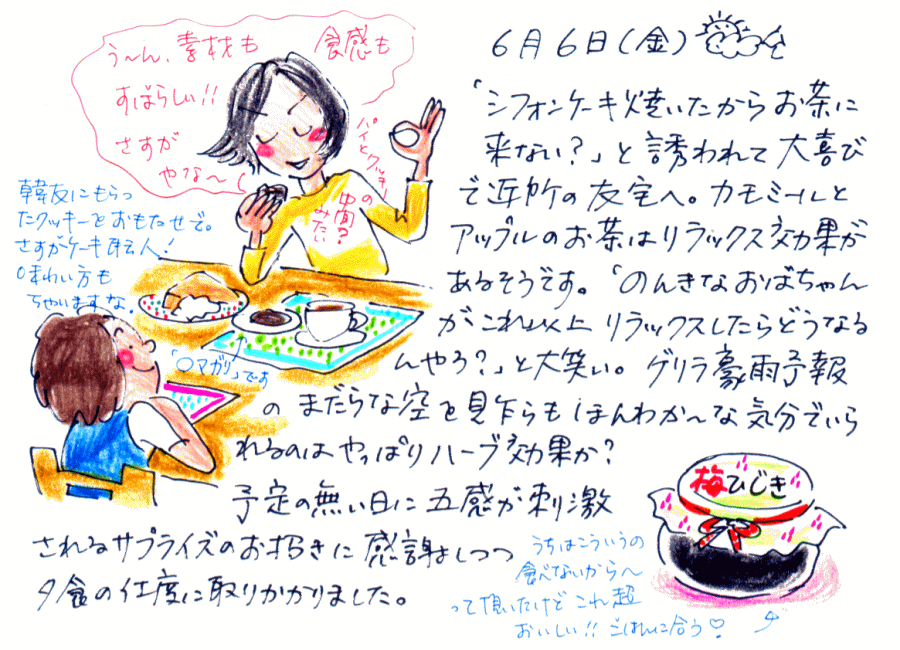 6月6日(金)
「シフォンケーキ焼いたからお茶に
来ない?」と誘われて大喜び
で近所の友宅へ。カモミールと
アップルのお茶はリラックス効果が
あるそうです。「のんきなおばちゃん
がこれ以上リラックスしたらどうなる
んやろ?」と大笑い。ゲリラ豪雨予報
のまだらな空を見乍らもほんわか〜な気分でいら
れるのはやっぱりハーブ効果か?
予定の無い日に五感が刺激
されるサプライズのお招きに感謝しつつ
夕食の仕度に取りかかりました。
う〜ん、素材も 食感も
すばらしい!!
さすが
やな〜
パイとクッキー
の中間?
みたい
韓友にもらっ
たクッキーをおもたせで。
さすがケーキ職人!
味わい方も
ちゃいますな。
「○マガリ」です
梅ひじき
うちはこういうの
食べないから〜
って頂いたけどこれ超
おいしい!!ごはんに合う♡